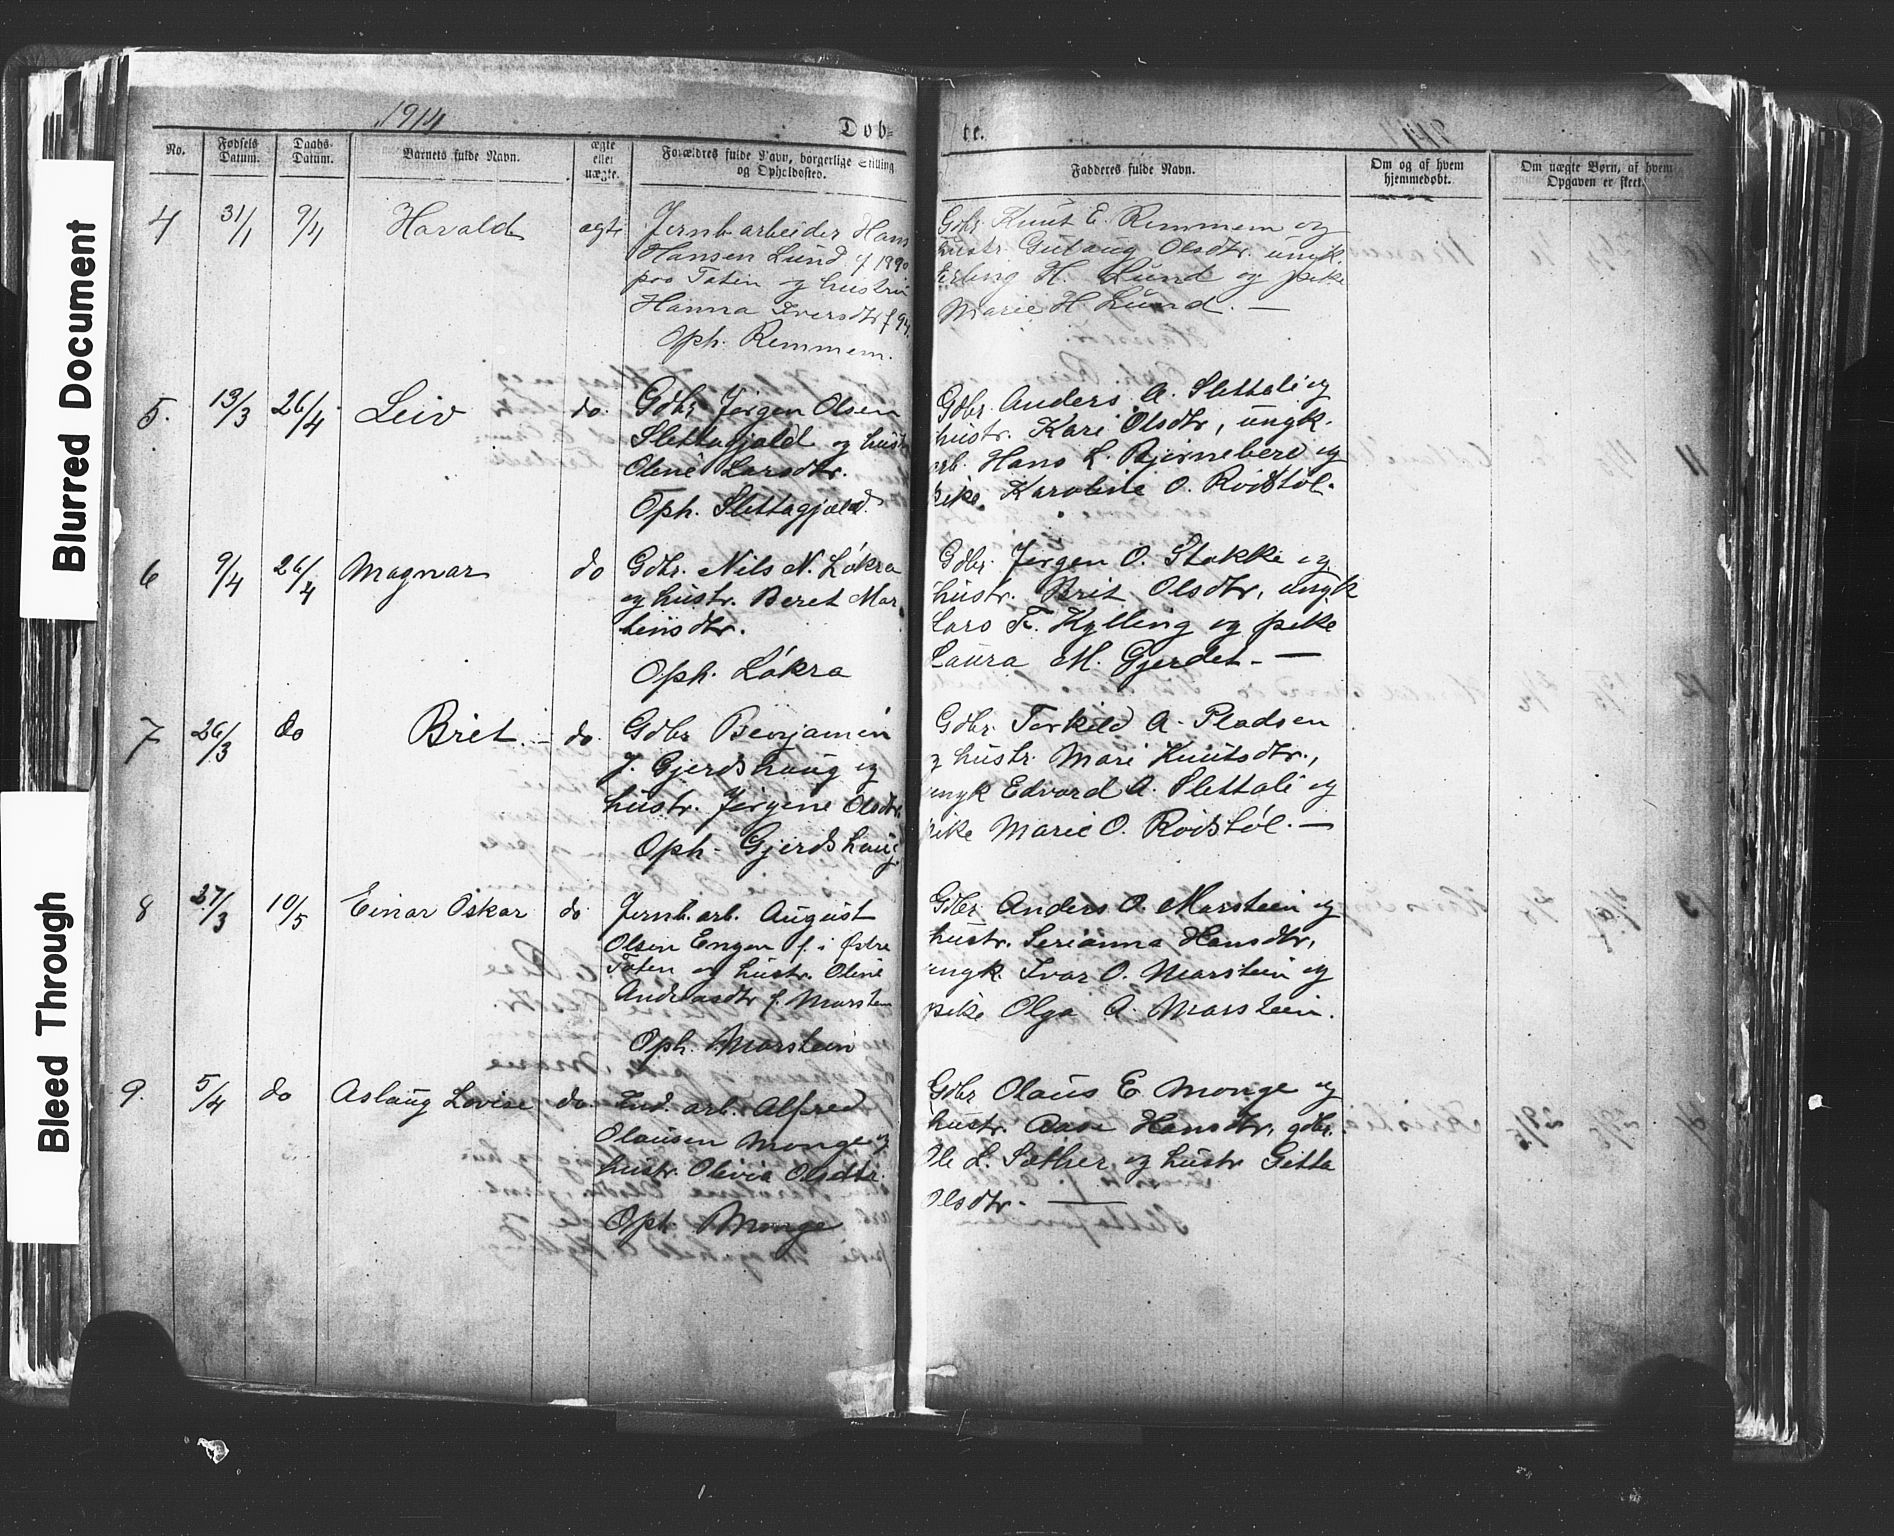 Blurred Document
Bleed Through
1914
Døb-
te.
No.
Fødsels Datum.
Daabs-Datum.
Barnets fulde Navn.
ægte eller uægte.
Forældres fulde Navn, borgerlige Stilling og Opholdssted.
Fadderes fulde Navn.
Om og af hvem hjemmedøbt.
Om uægte Børn, af hvem Opgaven er skeet.
4 31/1 9/4 Harald ægte
Jernb. arbeider Hans
Hansen Lund f 1890
paa Toten og hustru
Hanna Iversdtr f 94.
Oph. Remmem.
Gdbr. Knut E. Remmem og
hustr. Gutaug Olsdtr. ungk.
Erling H. Lund og pike
Marie H Lund. —
5. 13/3 26/4 Leiv do.
Gdbr Jørgen Olsen
Slettagjæld og hustr
Oline Larsdtr.
Oph. Slettagjæld.
Gdbr. Anders A. Slettali og
hustr. Kari Olsdtr, ungk.
arb. Hans L. Bjørnebere og
pike Karoline O. Rødstøl.
6 9/4 26/4 Magnar do
Gdbr. Nils N. Løkra
og hustr. Beret Mar-
tinsdtr.
Oph. Løkra
Gdbr. Jørgen O. Stokke og
hustr. Brit Olsdtr, ungk
Lars T. Kylling og pike
Laura M. Gjerdet. —
7 26/3 do Brit. — do.
Gdbr Benjamin
J. Gjerdshaug og
hustr. Jørgine Olsdtr.
Oph. Gjerdshaug
Gdbr. Torkild A. Pladsen
og hustr. Mari Knutsdtr.,
ungk Edvard A. Slettali og
pike Marie O. Rødstøl. —
8 27/3 10/5 Einar Oskar do
Jernb. arb. August
Olsen Engen f. i Østre
Toten og hustr. Oline
Andreasdtr f. Marstein
Oph. Marstein
Gdbr. Anders O. Marstein og
hustr. Serianna Hansdtr,
ungk. Ivar O. Marstein og
pike Olga A. Marstein.
9. 5/4 do Aslaug Lovise do
Ind. arb. Alfred
Olausen Monge og
hustr. Olivia Olsdtr.
Oph. Monge
Gdbr Olaus E Monge og
hustr. Aase Hansdtr, gdbr.
Ole L. Sæther og hustr Gitta
Olsdtr. —